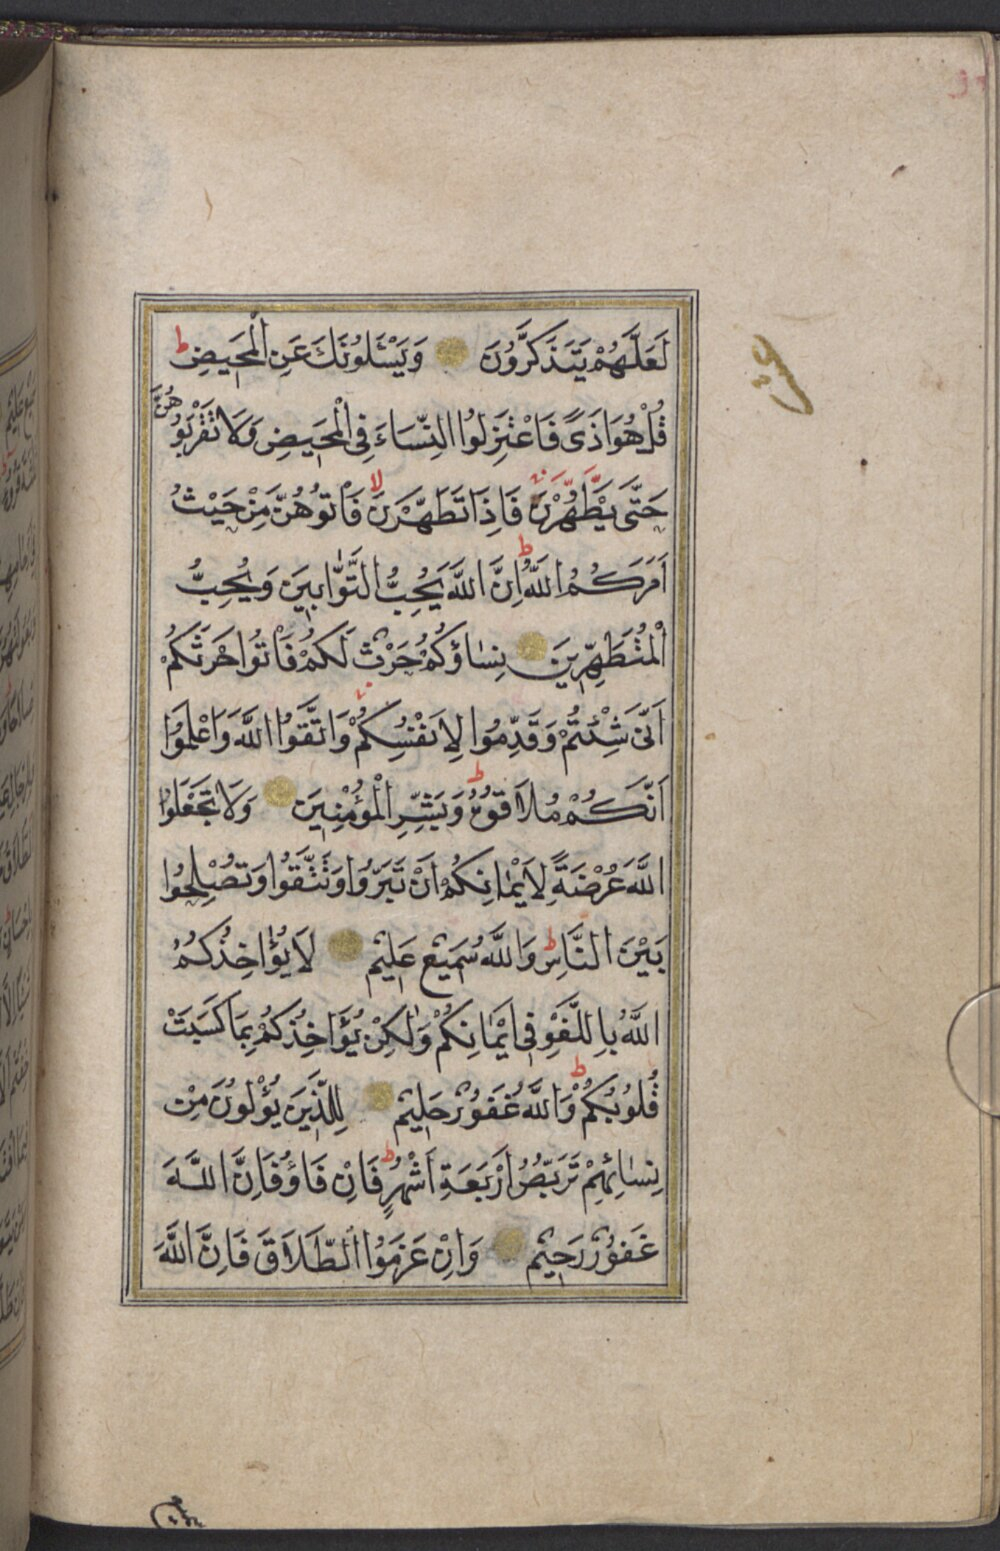 لَعَلَّهُمْ يَتَذَكَّرُونَ وَيَسْـَٔلُونَكَ عَنِ الْمَحِيضِ ط
قُلْ هُوَ اَذًى فَاعْتَزِلُوا النِّسَاءَ فِى الْمَحِيضِ وَلَا تَقْرَبُوهُنَّ
حَتّٰى يَطَّهَّرْنَ فَاِذَا تَطَهَّرْنَ لا فَأْتُوهُنَّ مِنْ حَيْثُ
اَمَرَكُمُ اللّٰهُ ط اِنَّ اللّٰهَ يُحِبُّ التَّوَّابِينَ وَيُحِبُّ
الْمُتَطَهِّرِينَ نِسَاؤُكُمْ حَرْثٌ لَكُمْ فَأْتُوا حَرْثَكُمْ
اَنّٰى شِئْتُمْ وَقَدِّمُوا لِاَنْفُسِكُمْ وَاتَّقُوا اللّٰهَ وَاعْلَمُوا
اَنَّكُمْ مُلَاقُوهُ ط وَبَشِّرِ الْمُؤْمِنِينَ وَلَا تَجْعَلُوا
اللّٰهَ عُرْضَةً لِاَيْمَانِكُمْ اَنْ تَبَرُّوا وَتَتَّقُوا وَتُصْلِحُوا
بَيْنَ النَّاسِ ط وَاللّٰهُ سَمِيعٌ عَلِيمٌ لَا يُؤَاخِذُكُمُ
اللّٰهُ بِاللَّغْوِ فِى اَيْمَانِكُمْ وَلٰكِنْ يُؤَاخِذُكُمْ بِمَا كَسَبَتْ
قُلُوبُكُمْ ط وَاللّٰهُ غَفُورٌ حَلِيمٌ لِلَّذِينَ يُؤْلُونَ مِنْ
نِسَائِهِمْ تَرَبُّصُ اَرْبَعَةِ اَشْهُرٍ ط فَاِنْ فَاؤُ فَاِنَّ اللّٰهَ
غَفُورٌ رَحِيمٌ وَاِنْ عَزَمُوا الطَّلَاقَ فَاِنَّ اللّٰهَ